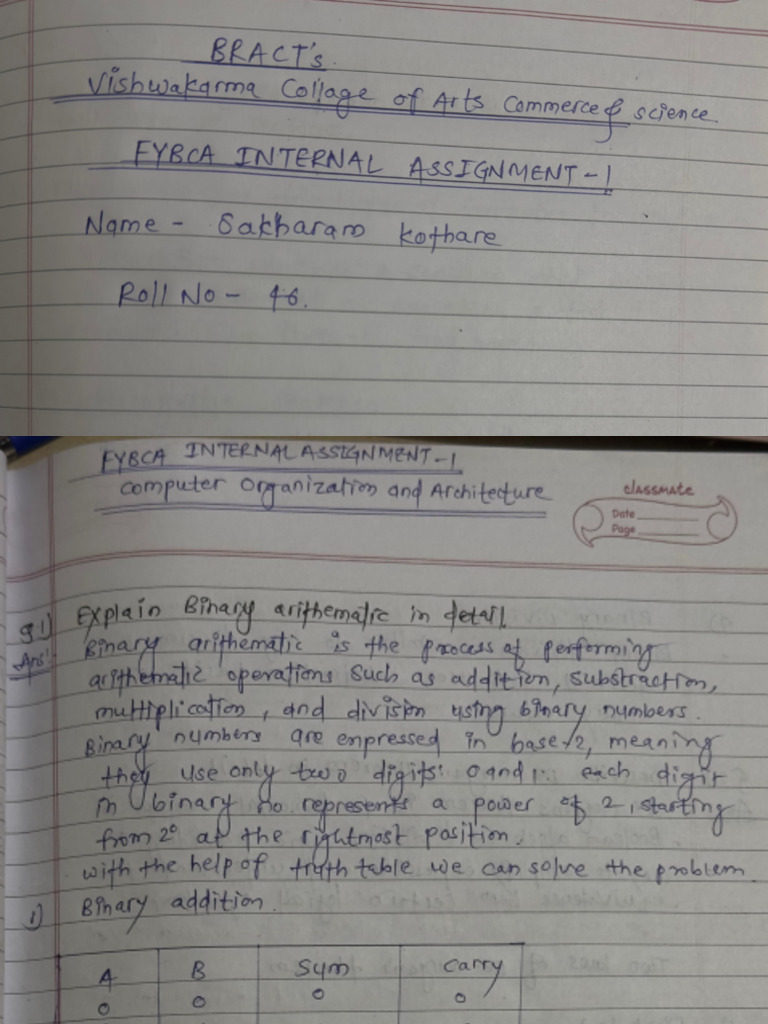 BRACT's
Vishwakarma Collage of Arts Commerce & science
FYBCA INTERNAL ASSIGNMENT-1
Name - Sakharam Kothare
Roll No - 46.
FYBCA INTERNAL ASSIGNMENT-1
Computer Organization and Architecture
classmate
Date
Page
Q1) Explain Binary arithematic in detail
Ans: Binary arithematic is the process of performing
arithematic operations such as addition, substraction,
multiplication, and division using binary numbers.
Binary numbers are expressed in base-2, meaning
they use only two digits: 0 and 1. each digit
in binary no represents a power of 2, starting
from 2⁰ at the rightmost position.
with the help of truth table we can solve the problem.
1) Binary addition.
A B Sum Carry
0 0 0 0